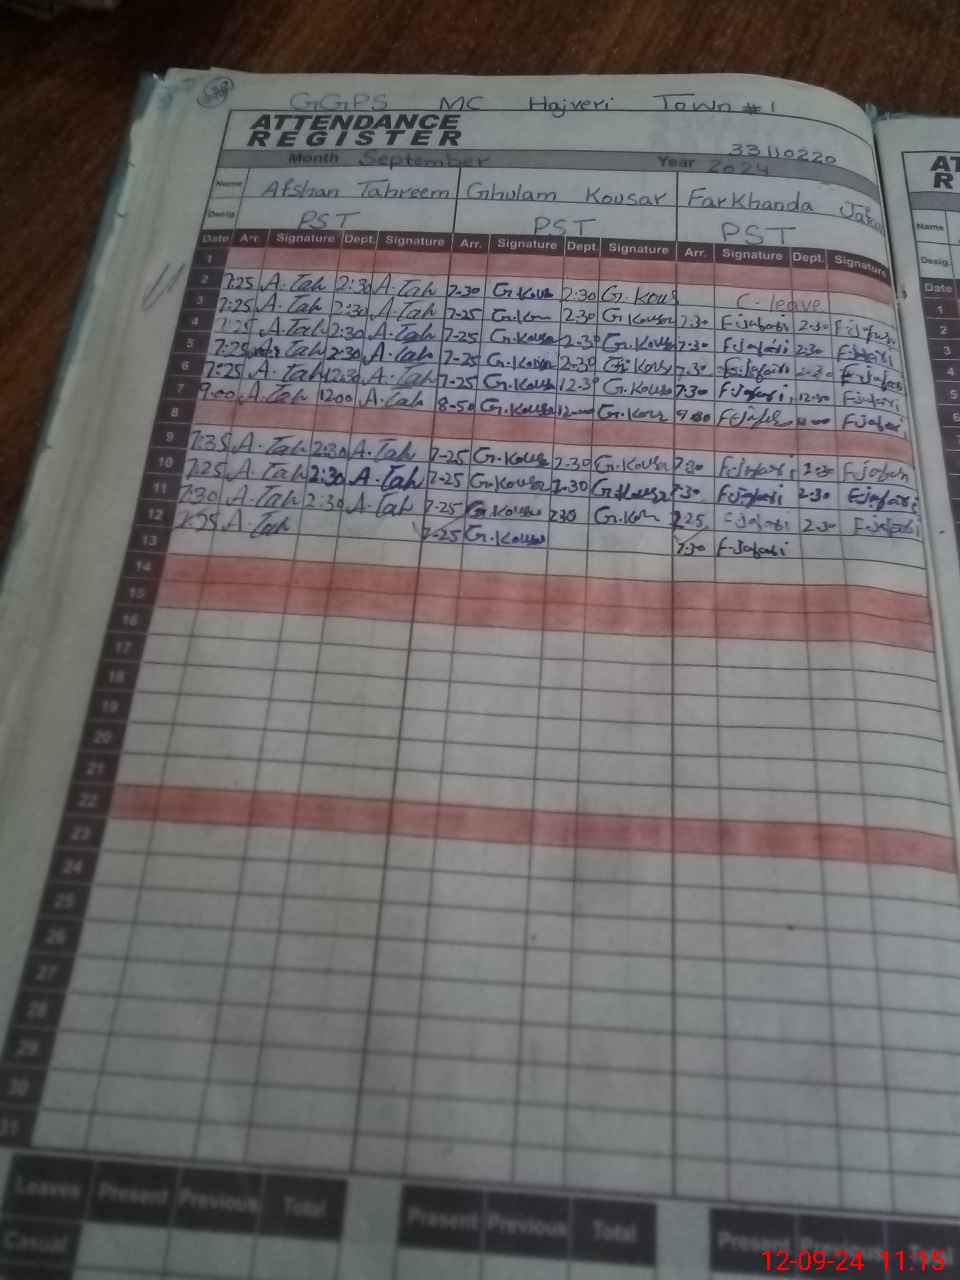 38
GGPS MC Hajveri Town #1
ATTENDANCE
REGISTER
33110220
Month September Year 2024
Name Afshan Tahreem Ghulam Kousar Farkhanda
Desig. PST PST PST
Date Arr. Signature Dept. Signature Arr. Signature Dept. Signature Arr. Signature Dept. Signature
1
2 7:25 A.Tah 2:30 A.Tah 7-30 G.Kous 2:30 G.Kous C-leave
3 7:25 A.Tah 2:30 A.Tah 7-25 2:30 G.Kousar 7.30 F.jafari 2:30
4 7:25 A.Tah 2:30 A.Tah 7-25 G.Kousar 2-30 G.Kousar 7:30 F.jafari 2:30 F.jafari
5 7:25 A.Tah 2:30 A.Tah 7-25 G.Kousar 2-30 G.Kousar 7.30 F.jafari 2:30 F.jafari
6 7:25 A.Tah 12:30 A.Tah 7-25 G.Kousar 12.30 G.Kousar 7:30 F.jafari 12:30 F.jafari
7 9:00 A.Tah 12:00 A.Tah 8-50 G.Kousar G.Kousar F.jafari
8
9 7:35 A.Tah 2:30 A.Tah 7-25 G.Kousar 2-30 G.Kousar 7:30 F.jafari 2:30 F.jafari
10 7:25 A.Tah 2:30 A.Tah 7-25 G.Kousar 2.30 G.Kousar 7:30 F.jafari 2:30 F.jafari
11 7:30 A.Tah 2:30 A.Tah 7-25 G.Kousar 230 7:25 F.jafari 2:30 F.jafari
12 A.Tah 7-25 G.Kousar 7:30 F.Jafari
13
14
15
16
17
18
19
20
21
22
23
24
25
26
27
28
29
30
31
Leaves Present Previous Total Present Previous Total Present Previous Total
Casual
AT
R
Name
Desig.
Date
1
2
3
4
5
6
12-09-24 11:15